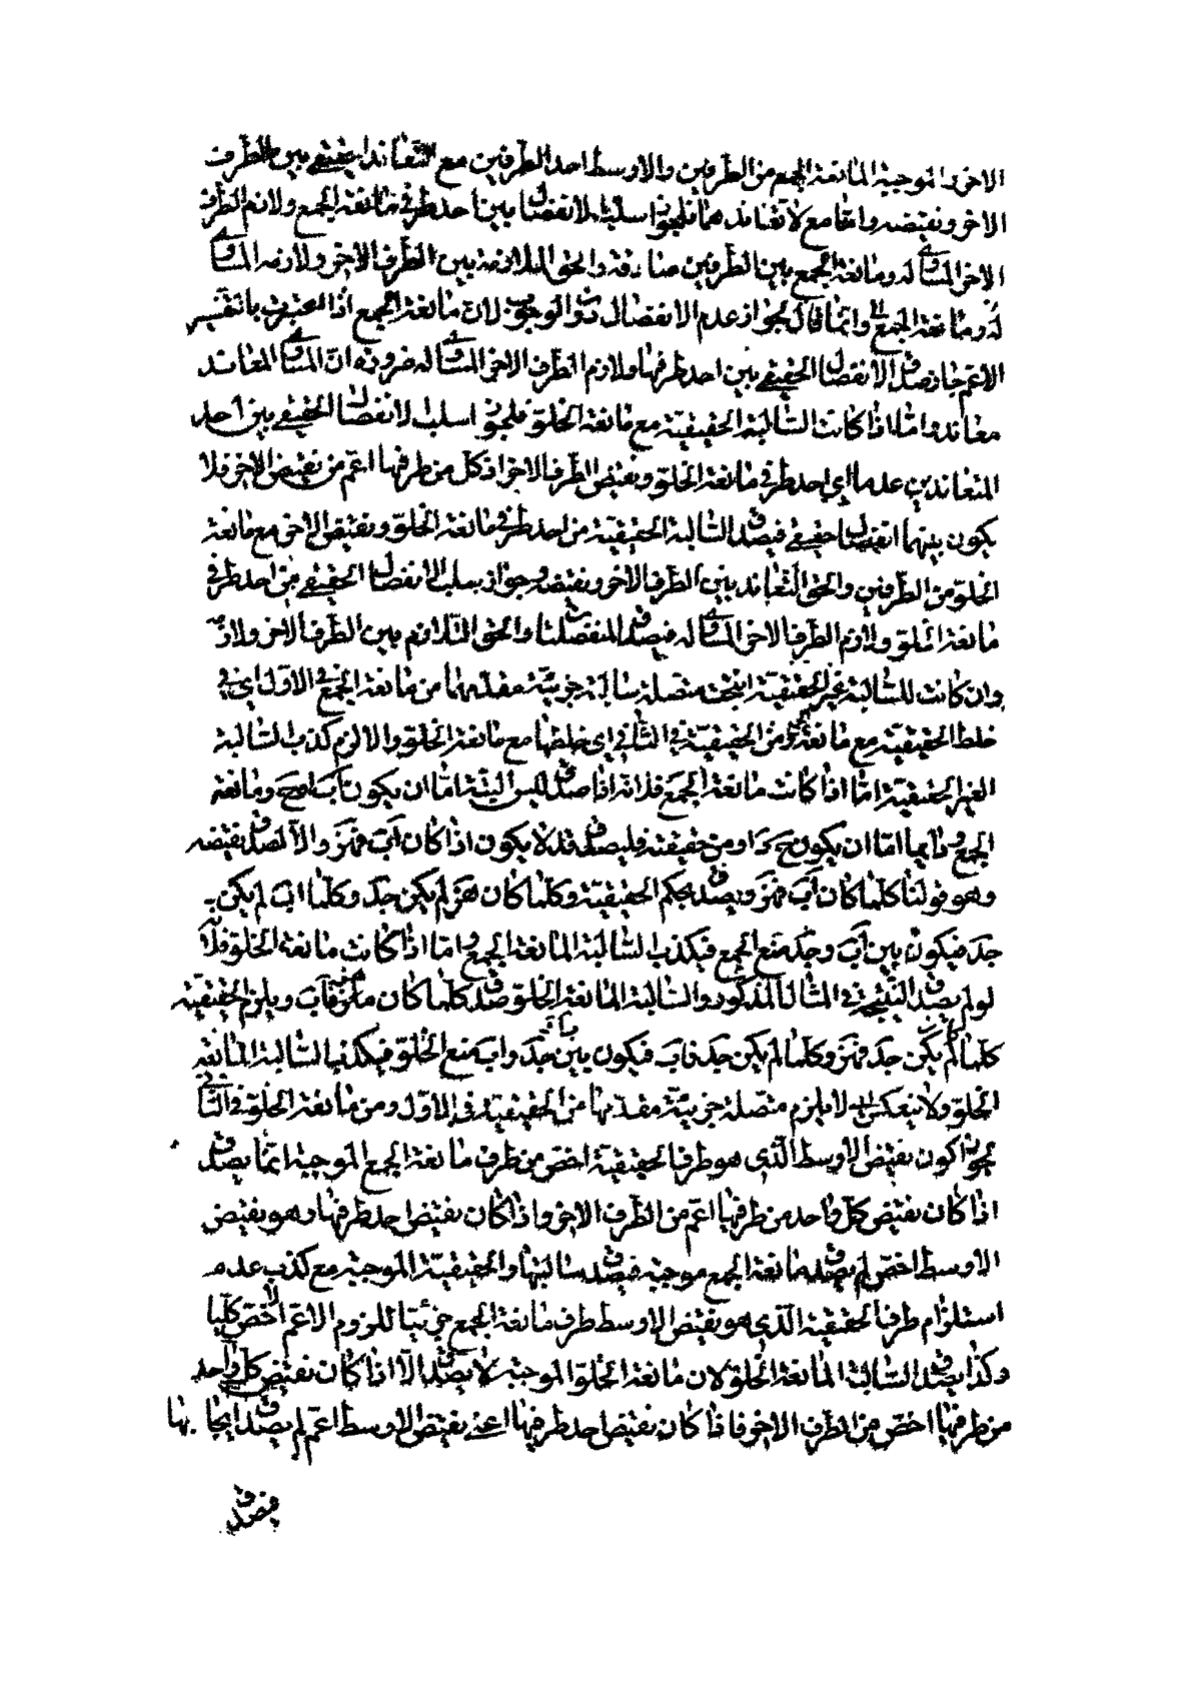 الاخر والموجبة المانعة الجمع من الطرفين والاوسط احد الطرفين مع التعاند الحقيقي بين الطرف
الاخر ونقيضه واما مع لا تعاندهما فلجواز سلب الانفصال بين احد طرفي مانعة الجمع ولازم الطرف
الاخر المساوي له ومانعة الجمع بين الطرفين صادقة والحق الملازمة بين الطرف الاخر ولازمه المساوي
له ومانعة الجمع وانما قال بجواز عدم الانفصال دون الوجوب لان مانعة الجمع اذا اعتبرت بالتفسير
الاعم جاز صدق الانفصال الحقيقي بين احد طرفيها ولازم الطرف الاخر المساوي له ضرورة ان المساوي المعاند
معاند واما اذا كانت السالبة الحقيقية مع مانعة الخلو فلجواز سلب الانفصال الحقيقي بين احد
المتعاندين عدما اي احد طرفي مانعة الخلو ونقيض الطرف الاخر اذ كل من طرفيها اعم من نقيض الاخر فلا
يكون بينهما انفصال حقيقي فيصدق السالبة الحقيقية من احد طرفي مانعة الخلو ونقيض الاخر مع مانعة
الخلو من الطرفين والحق التعاند بين الطرف الاخر ونقيضه وجواز سلب الانفصال الحقيقي من احد طرفي
مانعة الخلو ولازم الطرف الاخر المساوي له فيصدق المنفصلتان والحق التلازم بين الطرف الاخر ولازمه
وان كانت السالبة غير الحقيقية انتجت متصلة سالبة جزئية مقدمها من مانعة الجمع في الاول اي في
خلط الحقيقية مع مانعة الجمع ومن الحقيقية في الثاني اي خلطها مع مانعة الخلو والا لزم كذب السالبة
الغير الحقيقية اما اذا كانت مانعة الجمع فلانه اذا صدق ليس البتة اما ان يكون اب او جد ومانعة
الجمع ودايما اما ان يكون جد او هز حقيقية فليصدق قد لا يكون اذا كان اب فهز والا لصدق نقيضه
وهو قولنا كلما كان اب فهز ويصدق بحكم الحقيقية وكلما كان هز لم يكن جد وكلما اب لم يكن
جد فيكون بين اب وجد منع الجمع فيكذب السالبة المانعة الجمع واما اذا كانت مانعة الخلو فلانه
لو لم يصدق النتيجة في المثال المذكور والسالبة المانعة الخلو صدق كلما كان هز فاب ويلزم الحقيقية
كلما لم يكن جد فهز وكلما لم يكن جد فاب فيكون بين جد واب منع الخلو فيكذب السالبة المانعة
الخلو ولا ينعكس اي لا يلزم متصلة جزئية مقدمها من الحقيقية في الاول ومن مانعة الخلو في الثاني
لجواز كون نقيض الاوسط الذي هو طرف الحقيقية اخص من طرف مانعة الجمع الموجبة انما يصدق
اذا كان نقيض كل واحد من طرفيها اعم من الطرف الاخر واذا كان نقيض احد طرفيها وهو نقيض
الاوسط اخص لم يصدق مانعة الجمع موجبة فيصدق سالبتها والحقيقية الموجبة مع كذب عدم
استلزام طرف الحقيقية الذي هو نقيض الاوسط طرف مانعة الجمع جزئيا للزوم الاعم الاخص كليا
وكذا يصدق السالبة المانعة الخلو لان مانعة الخلو الموجبة لا يصدق الا اذا كان نقيض كل واحد
من طرفيها اخص من الطرف الاخر فاذا كان نقيض احد طرفيها اعني نقيض الاوسط اعم لم يصدق ايجابها
فيصدق